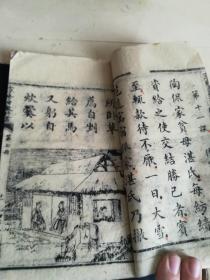 第十二課
陶侃家貧母湛氏每紡績
資給之使交結勝己者賓
至輒款待不厭一日大雪
湛氏乃撤
薦自剉
給其馬
又躬自
炊爨以